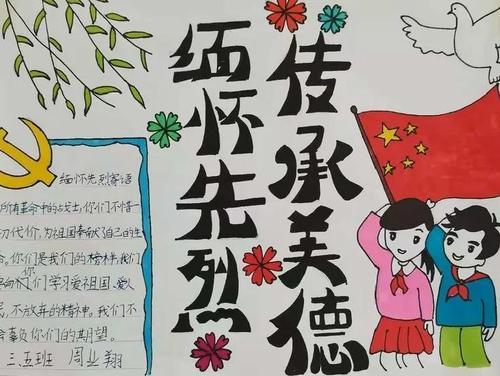 缅怀先烈
传承美德
缅怀先烈寄语
所有革命中的战士,你们不惜
切代价,为祖国奉献了自己的生
你们是我们的榜样,我们
向你们学习爱祖国、
不放弃的精神。我们不
会辜负你们的期望。
三五班 周业翔